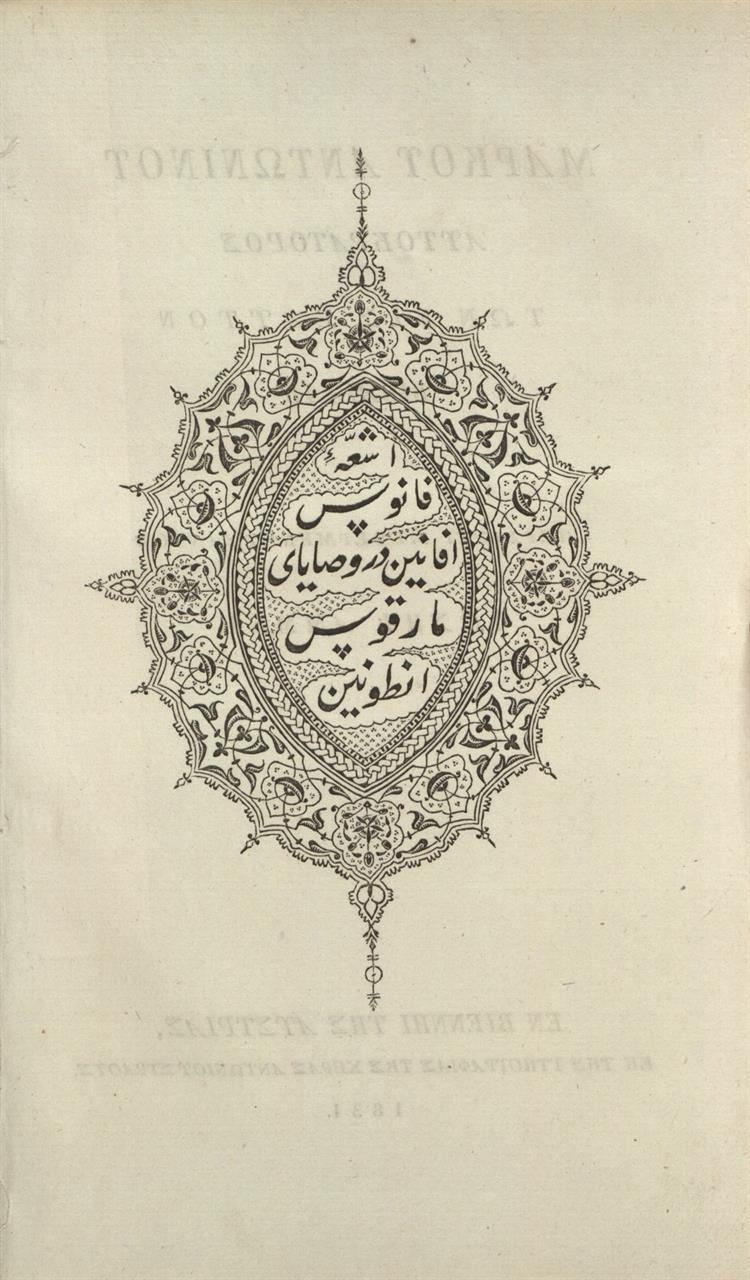 اشعّهٔ
فانوس
افانین در وصایای
مارقوس
انطونین